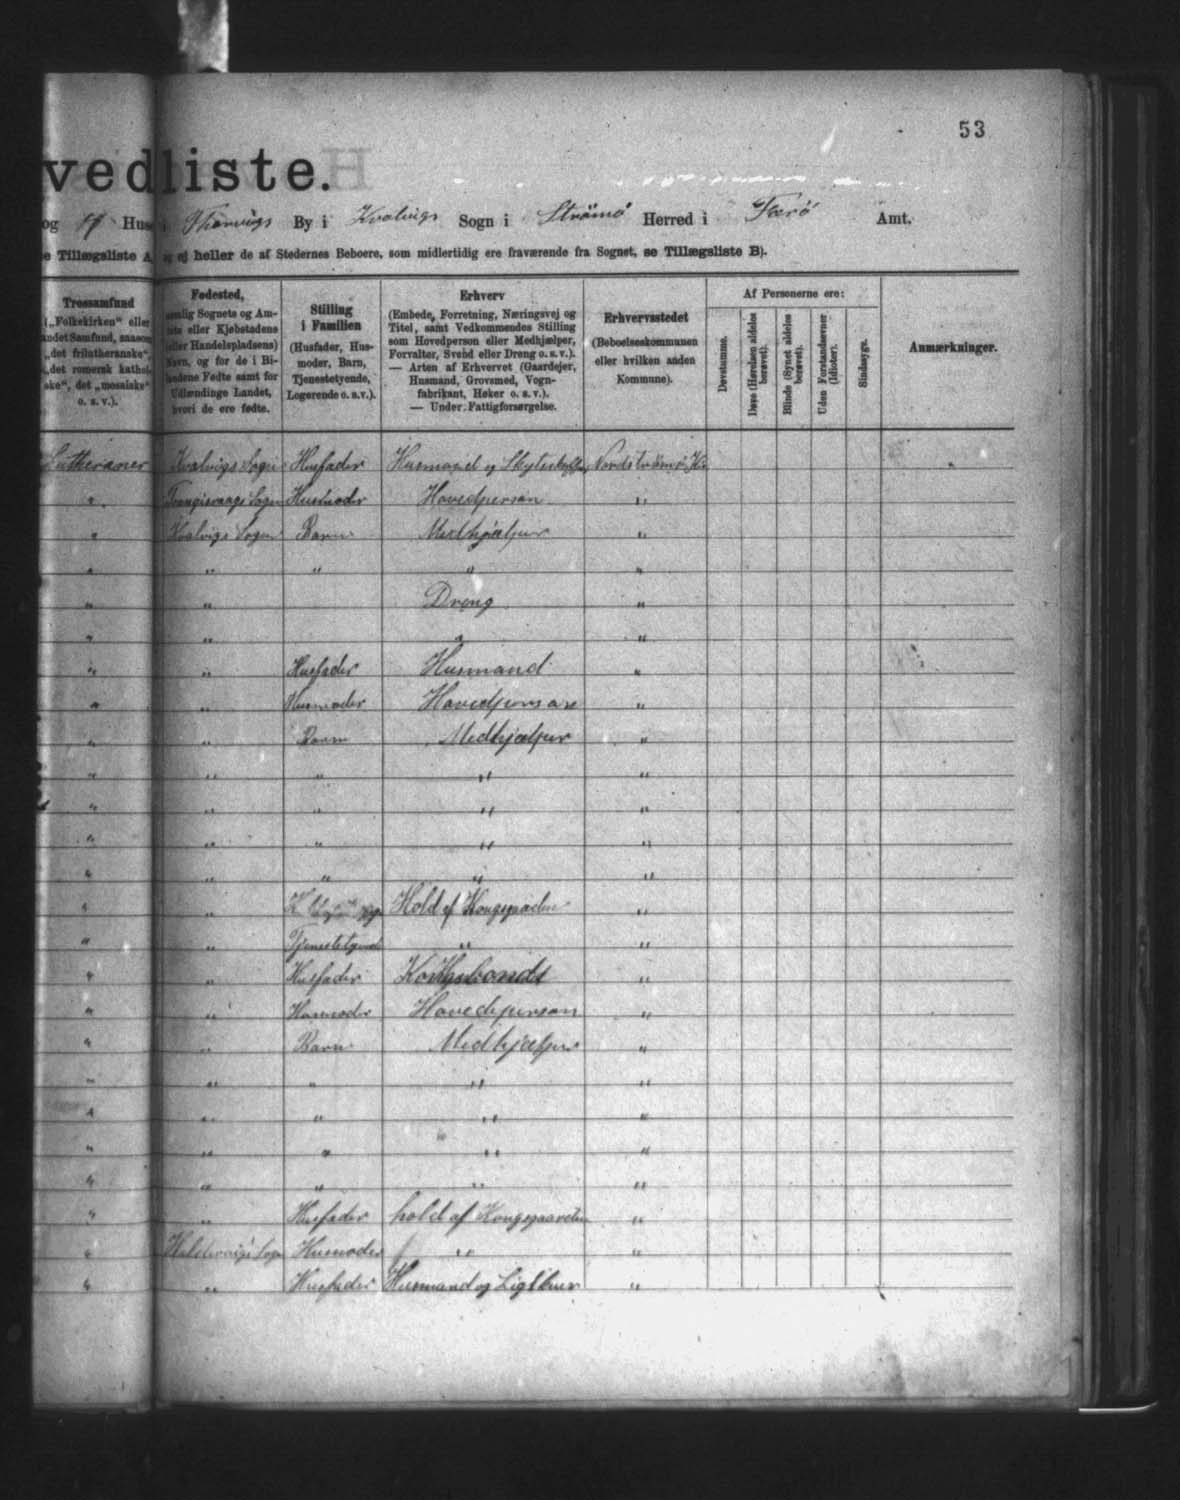 53
vedliste.
og Huse i By i Kvalvigs Sogn i Strömö Herred i Færö Amt.
e Tillægsliste A, og ej heller de af Stedernes Beboere, som midlertidig ere fraværende fra Sognet, se Tillægsliste B).
Trossamfund
(„Folkekirken“ eller
andet Samfund, saasom
„det frilutheranske“,
„det romersk kathol-
ske“, det „mosaiske“
o. s. v.).
Fødested,
nemlig Sognets og Am-
tets eller Kjøbstadens
(eller Handelspladsens)
Navn, og for de i Bi-
landene Fødte samt for
Udlændinge Landet,
hvori de ere fødte.
Stilling
i Familien
(Husfader, Hus-
moder, Barn,
Tjenestetyende,
Logerende o. s. v.).
Erhverv
(Embede, Forretning, Næringsvej og
Titel, samt Vedkommendes Stilling
som Hovedperson eller Medhjælper,
Forvalter, Svend eller Dreng o. s. v.).
— Arten af Erhvervet (Gaardejer,
Husmand, Grovsmed, Vogn-
fabrikant, Høker o. s. v.).
— Under Fattigforsørgelse.
Erhvervsstedet
(Beboelseskommunen
eller hvilken anden
Kommune).
Af Personerne ere:
Døvstumme.
Døve (Hørelsen aldeles
berøvet).
Blinde (Synet aldeles
berøvet).
Uden Forstandsevner
(Idioter).
Sindssyge.
Anmærkninger.
Lutheraner Kvalvigs Sogn Husfader Husmand og
" Sogn Husmoder Hovedperson "
" Kvalvigs Sogn Barn Medhjælper "
" " " " "
" " Dreng "
" " " "
" " Husfader Husmand "
" " Husmoder Hovedperson "
" " Barn Medhjælper "
" " " " "
" " " " "
" " " " "
" " " " "
" " Hold af Kongsgaarden "
" " Tjenestetyende " "
" " Husfader "
" " Husmoder Hovedperson "
" " Barn Medhjælper "
" " " " "
" " " " "
" " " " "
" " " " "
" " Husfader hold af Kongsgaarden "
" Sogn Husmoder " "
" " Husfader Husmand og "